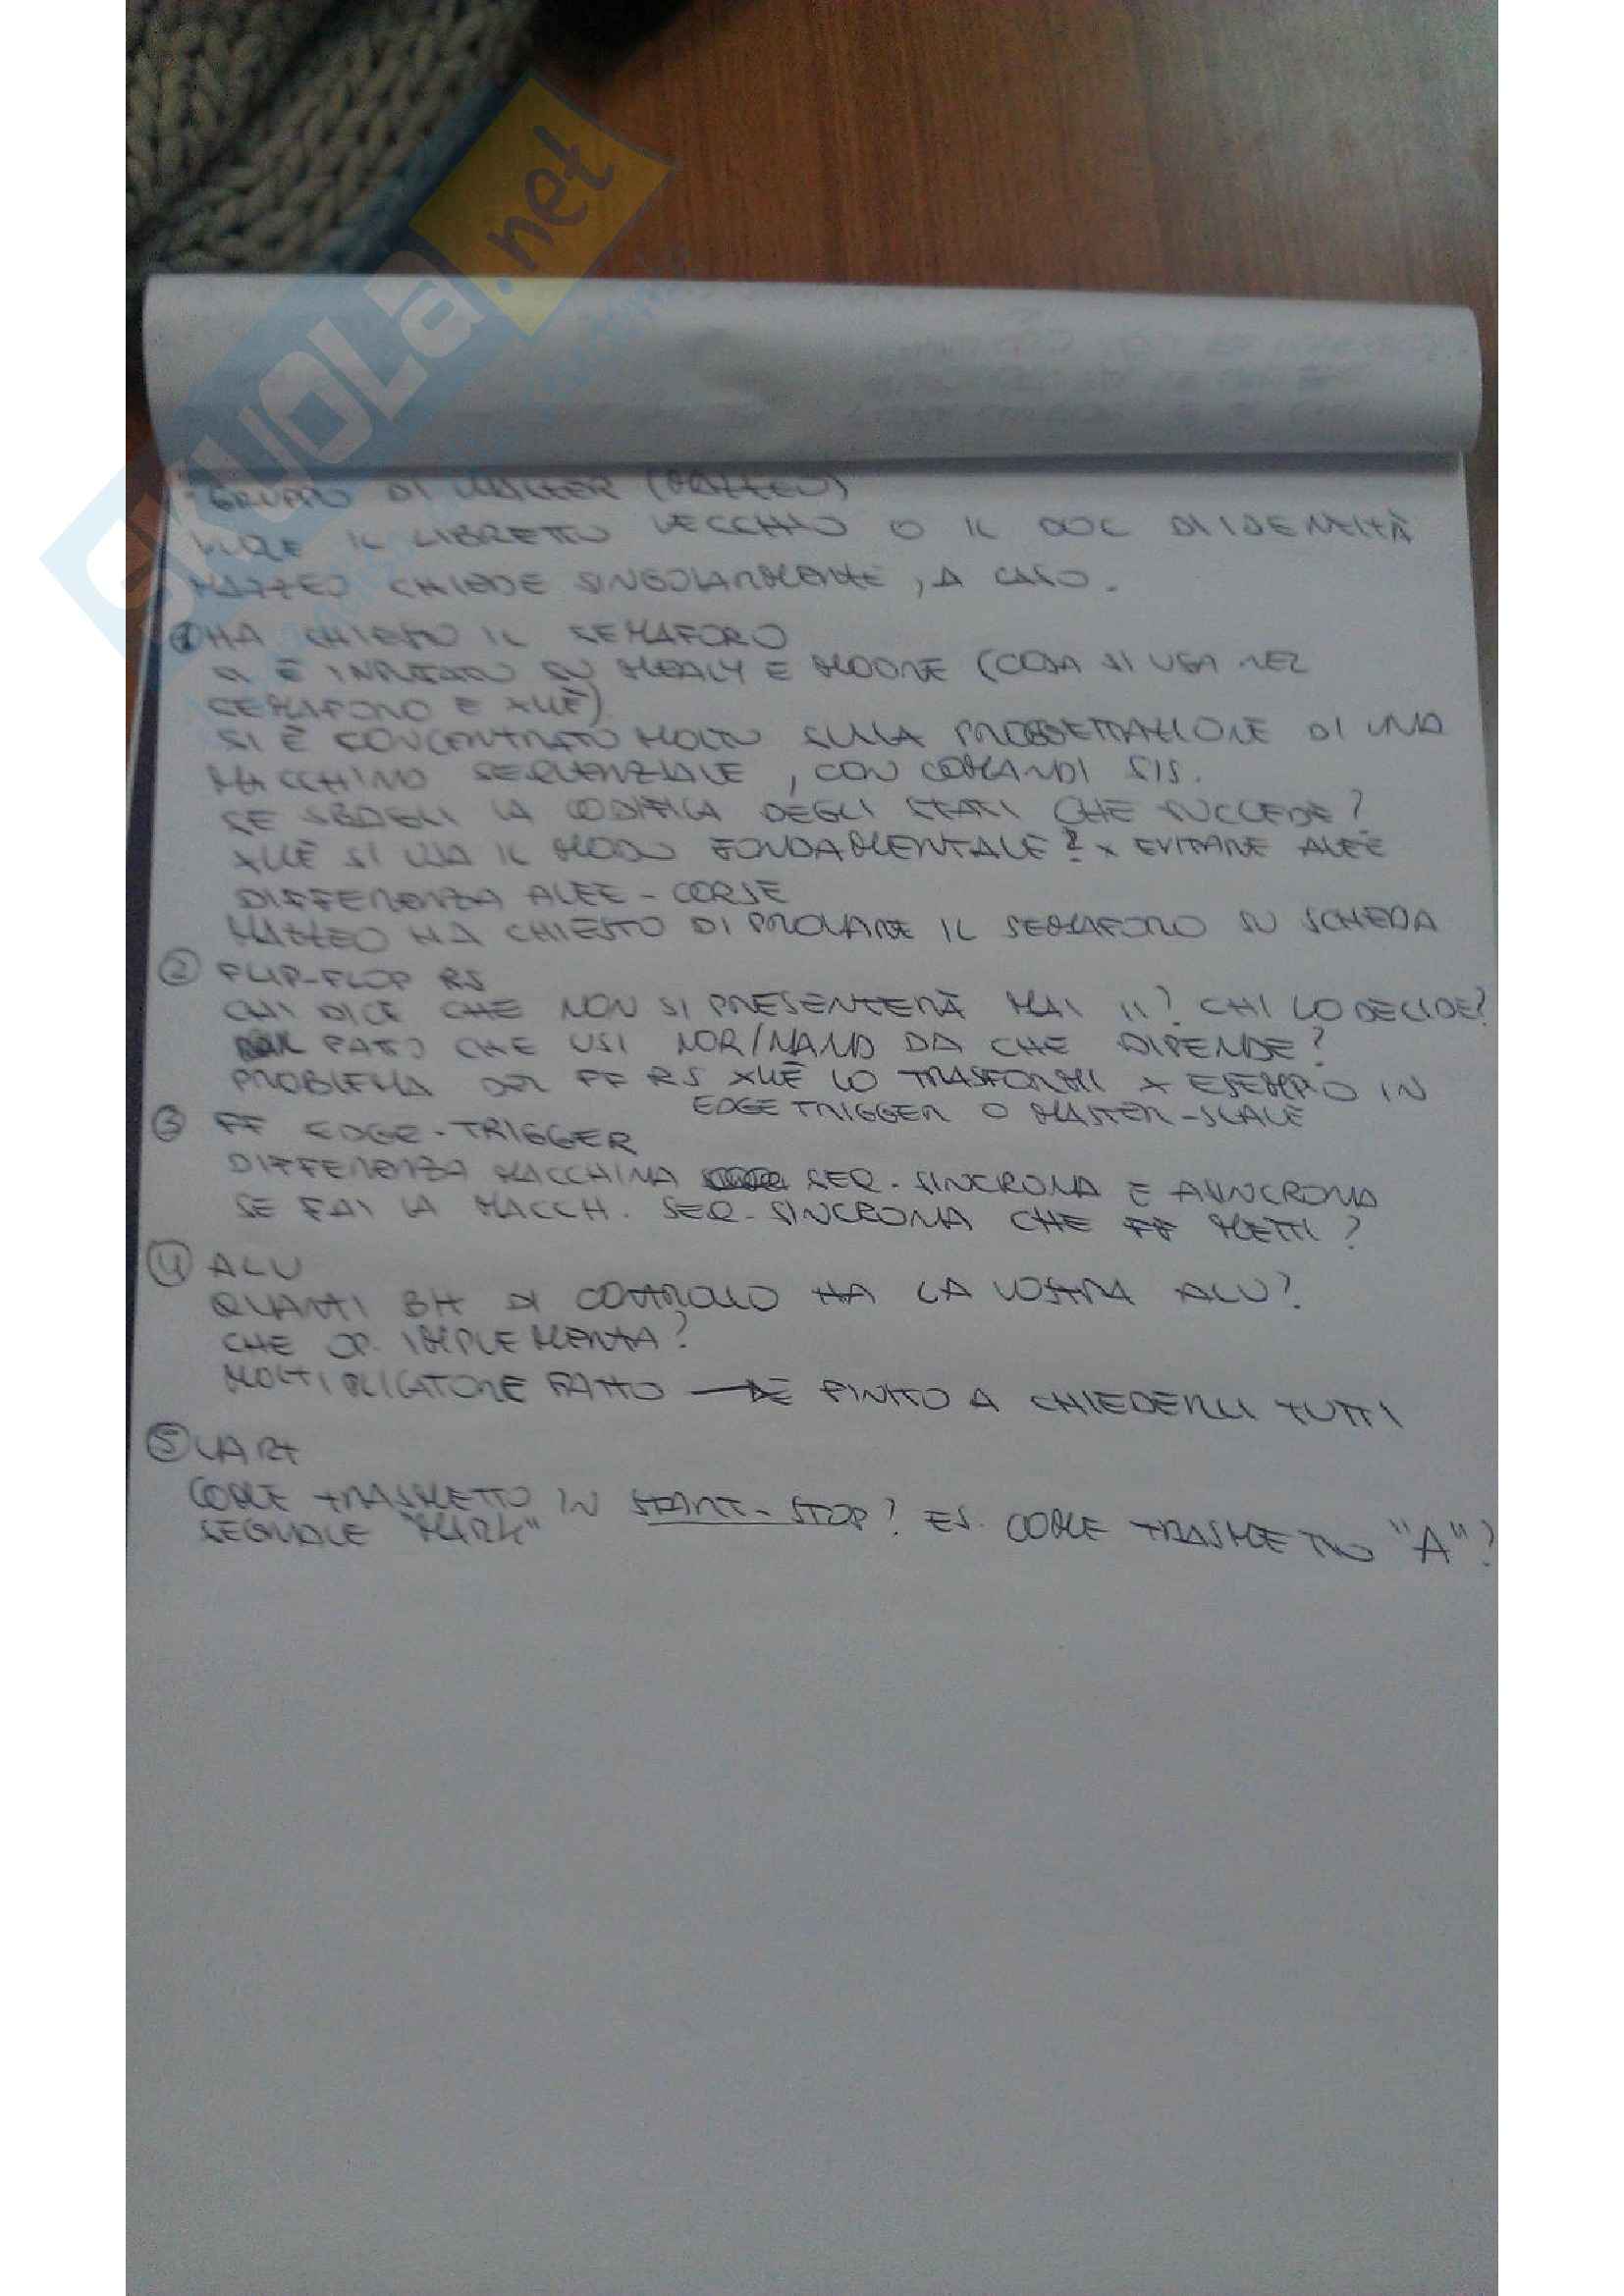 SKUOLA.net
GRUPPO DI WALTER (MATTEO)
VUOLE IL LIBRETTO VECCHIO O IL DOC DI IDENTITÀ
MATTEO CHIEDE SINGOLARMENTE, A CASO.
① HA CHIESTO IL SEMAFORO
SI È IMPUNTATO SU MEALY E MOORE (COSA SI USA NEL
SEMAFORO E XKÈ)
SI È CONCENTRATO MOLTO SULLA PROGETTAZIONE DI UNA
MACCHINA SEQUENZIALE, CON COMANDI SIS.
SE SBAGLI LA CODIFICA DEGLI STATI CHE SUCCEDE?
XKÈ SI USA IL MODO FONDAMENTALE? X EVITARE ALEE
DIFFERENZA ALEE - CORSE
MATTEO HA CHIESTO DI PROVARE IL SEMAFORO SU SCHEDA
② FLIP-FLOP RS
CHI DICE CHE NON SI PRESENTERÀ MAI 11? CHI LO DECIDE?
FATTO CHE USI NOR/NAND DA CHE DIPENDE?
PROBLEMA DEL FF RS XKÈ LO TRASFORMI X ESEMPIO IN
EDGE TRIGGER O MASTER-SLALE
③ FF EDGE-TRIGGER
DIFFERENZA MACCHINA SEQ. SINCRONA E ASINCRONA
SE FAI LA MACCH. SEQ. SINCRONA CHE FF METTI?
④ ALU
QUANTI BIT DI CONTROLLO HA LA VOSTRA ALU?
CHE OP. IMPLEMENTA?
MOLTIPLICATORE FATTO → È FINITO A CHIEDERLI TUTTI
⑤ UART
COME TRASMETTO IN START-STOP? ES. COME TRASMETTO "A"?
SEGNALE "MARK"